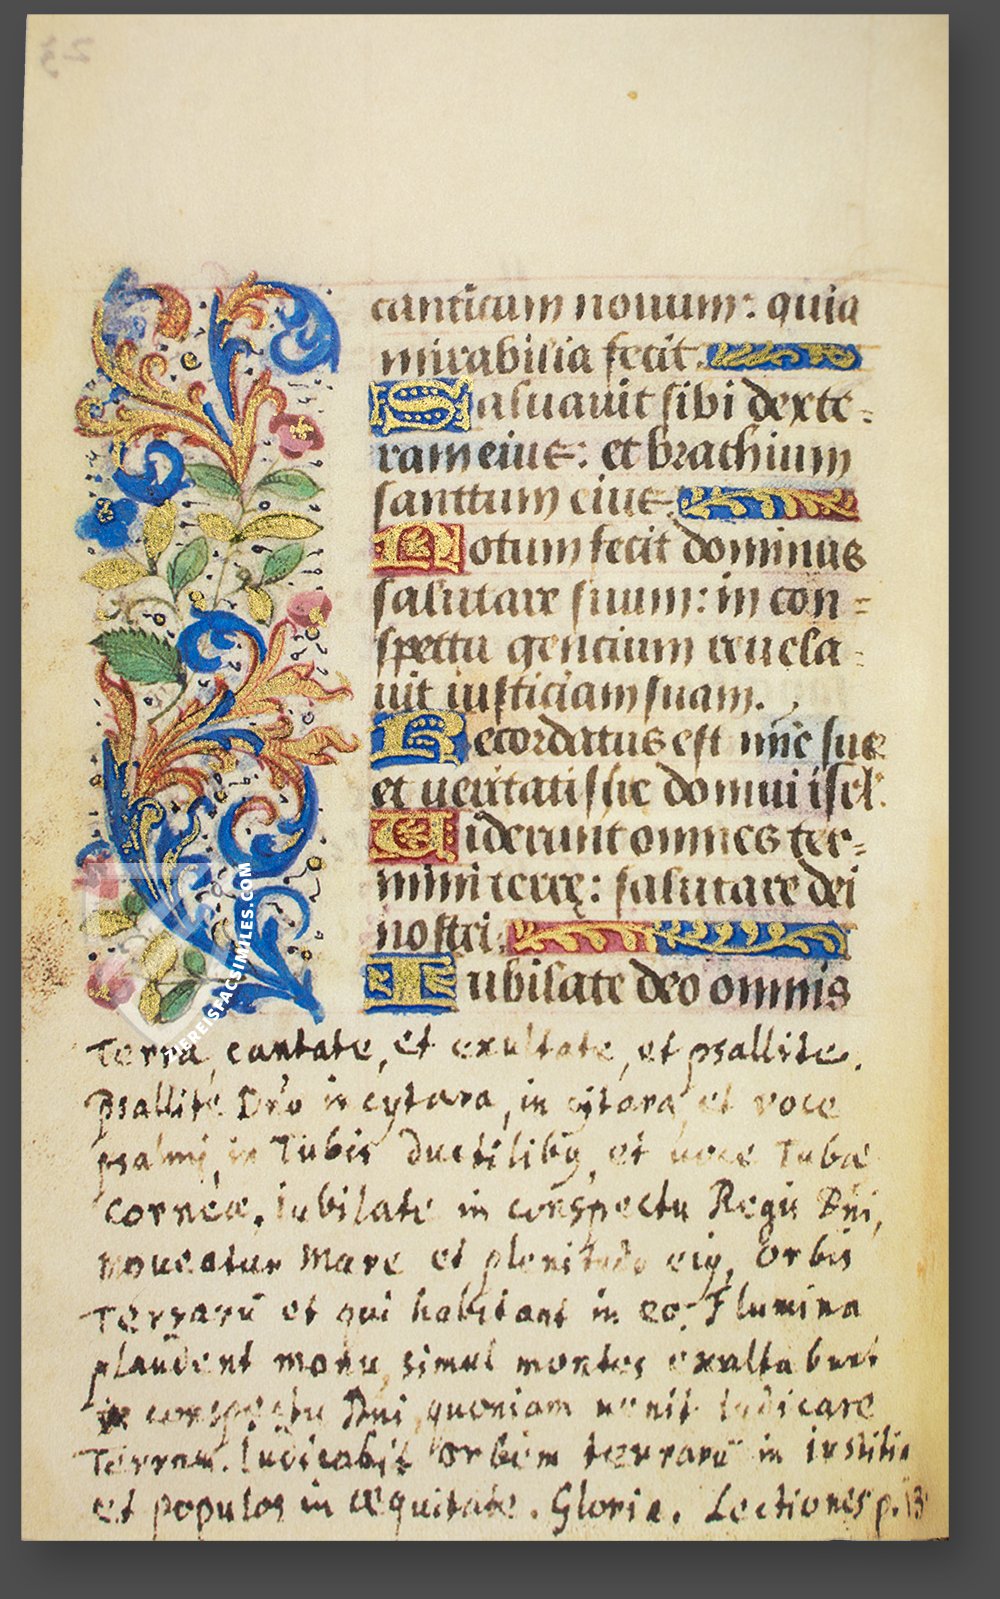 23
canticum nouum: quia
mirabilia fecit.
Saluauit sibi dexte=
ram eius: et brachium
sanctum eius.
Notum fecit dominus
salutare suum: in con=
spectu gentium reuela=
uit iusticiam suam.
Recordatus est mie sue
et ueritatis sue domui isrl.
Uiderunt omnes ter=
mini terrę: salutare dei
nostri.
Iubilate deo omnis
Terra, cantate, et exultate, et psallite.
Psallite Dno in cytara, in cytara et voce
psalmi, in Tubis ductilibq, et uoce Tubæ
corneæ. Iubilate in conspectu Regis Dni,
moueatur Mare et plenitudo eiq, Orbis
Terrarū et qui habitant in eo. Flumina
plaudent manu, simul montes exaltabunt
in conspectu Dni, quoniam uenit Iudicare
Terram. Iudicabit Orbem terrarū in iustitia
et populos in æquitate. Gloria. Lectiones p. 13
THEREISFACSIMILES.COM